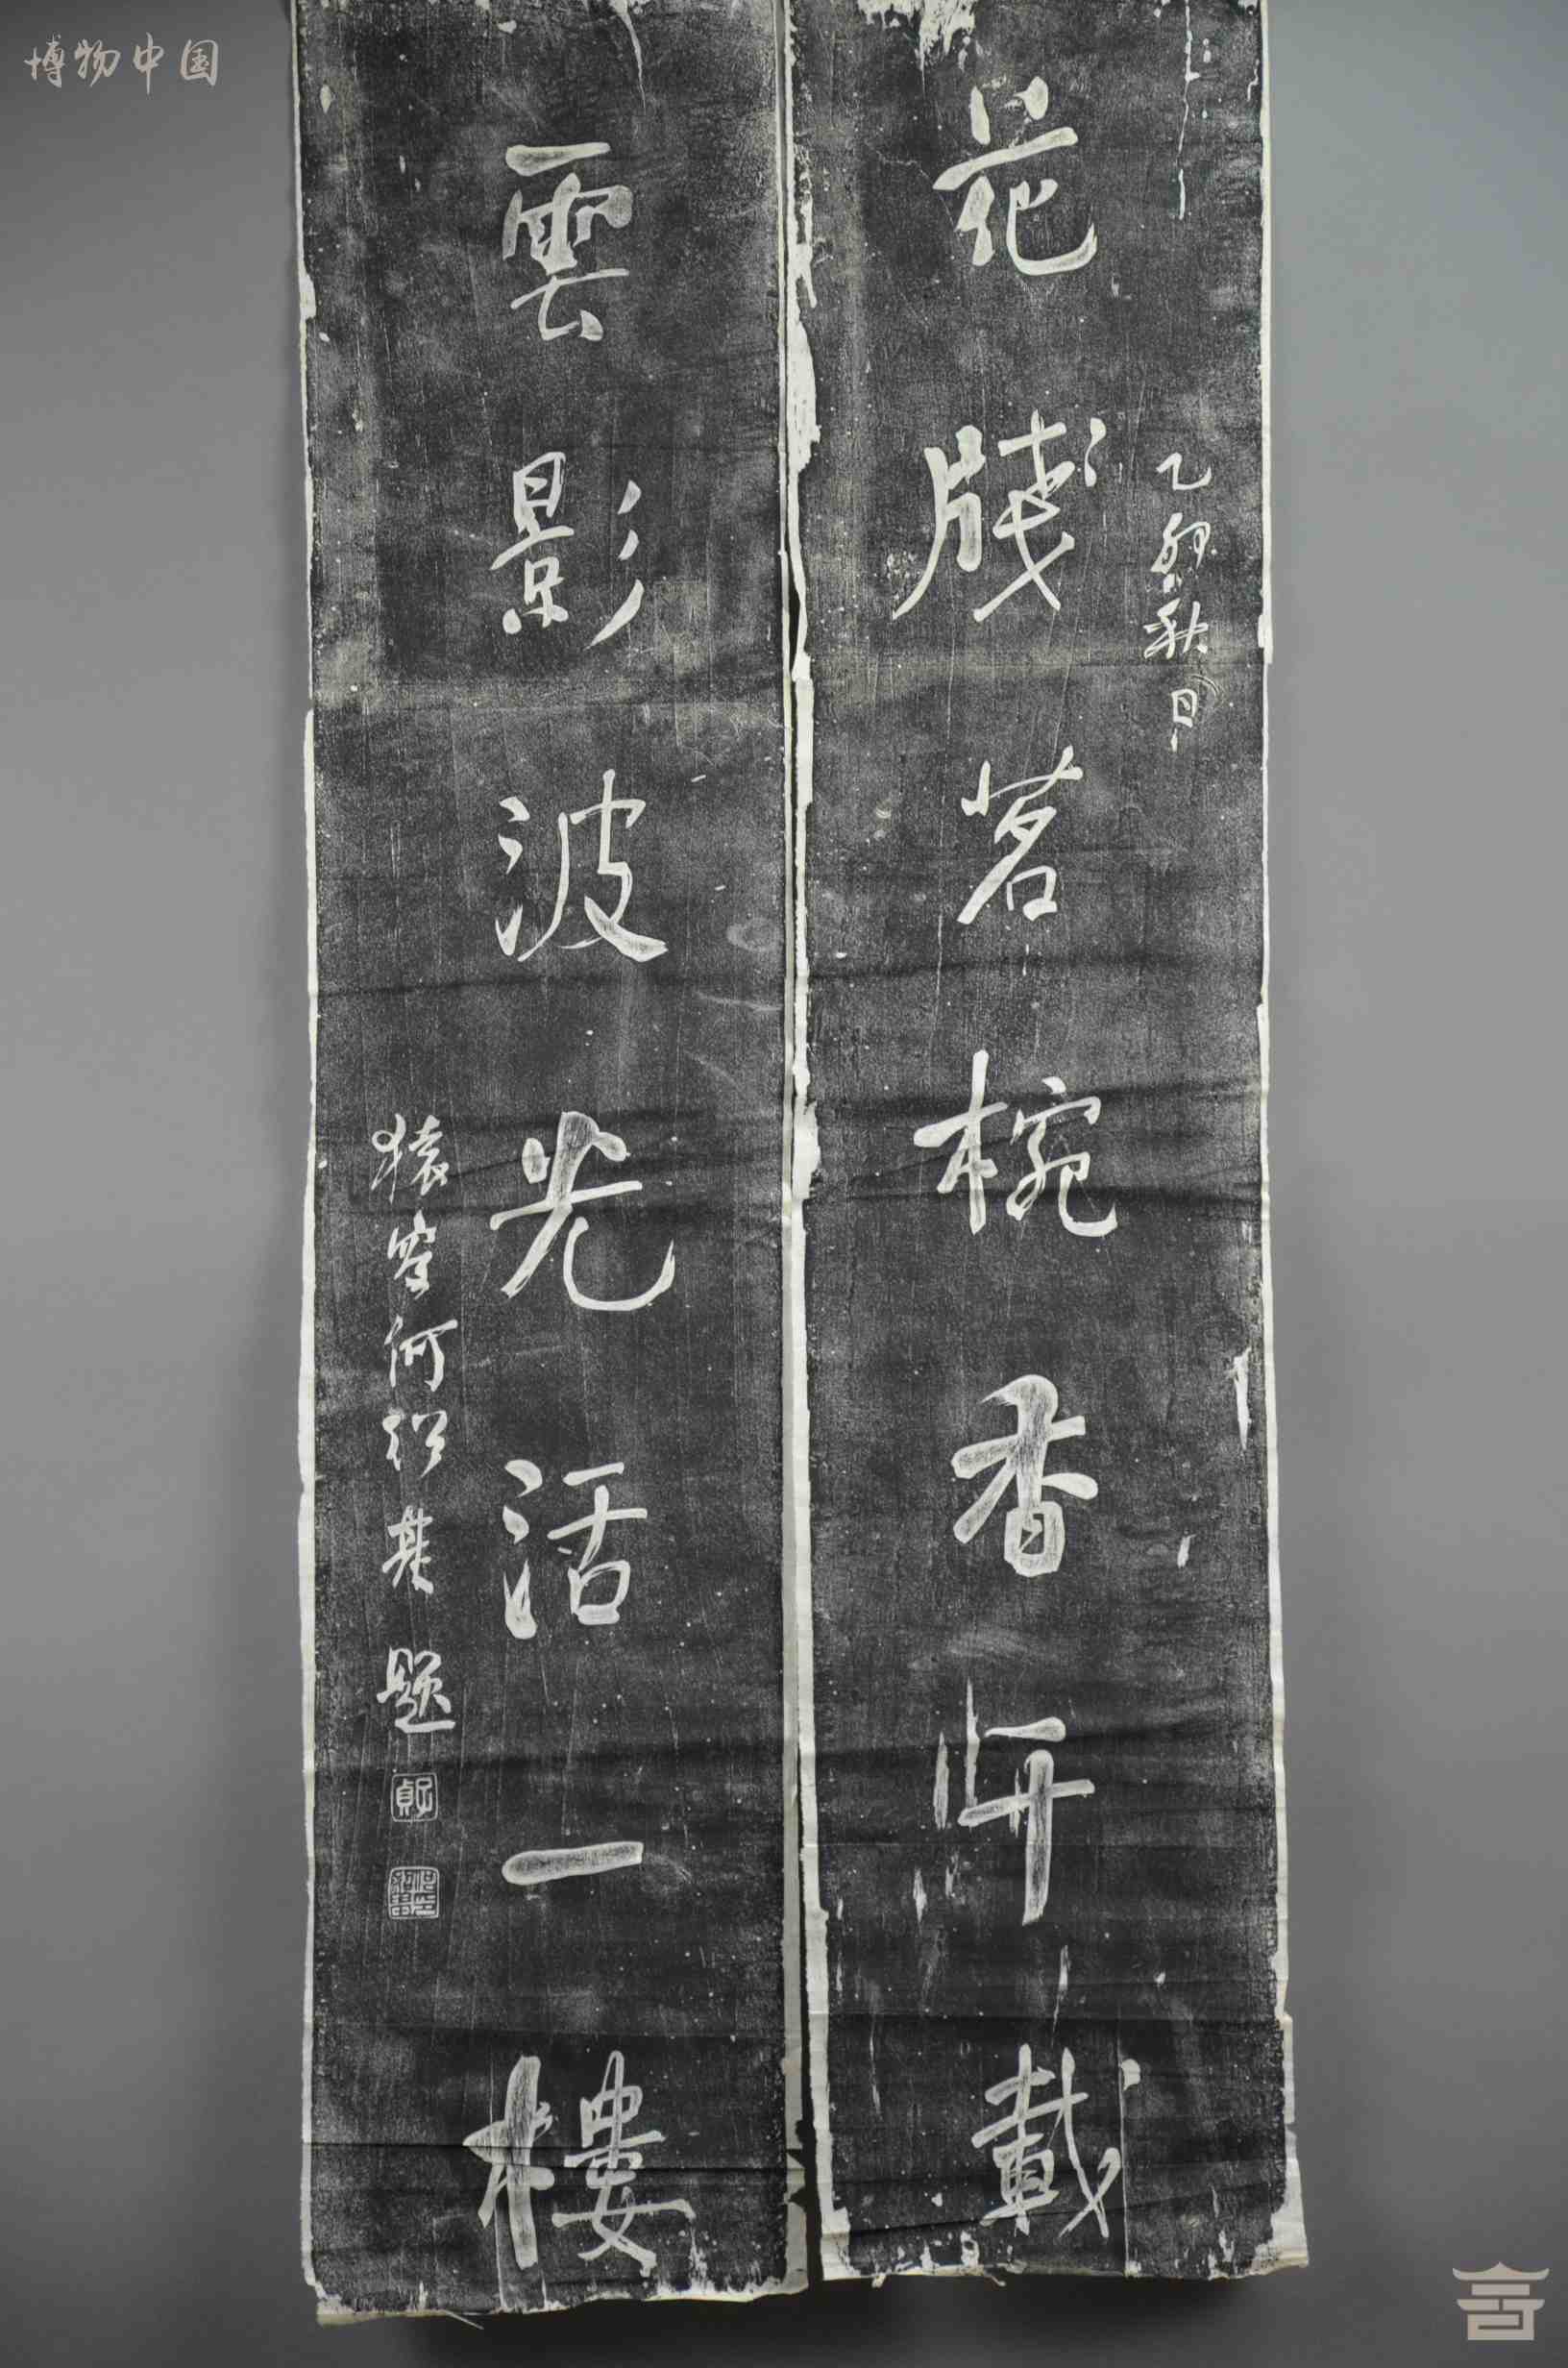 花牋茗椀香千載
乙卯秋日
雲影波光活一樓
猿叟何紹基題
子貞
博物中国